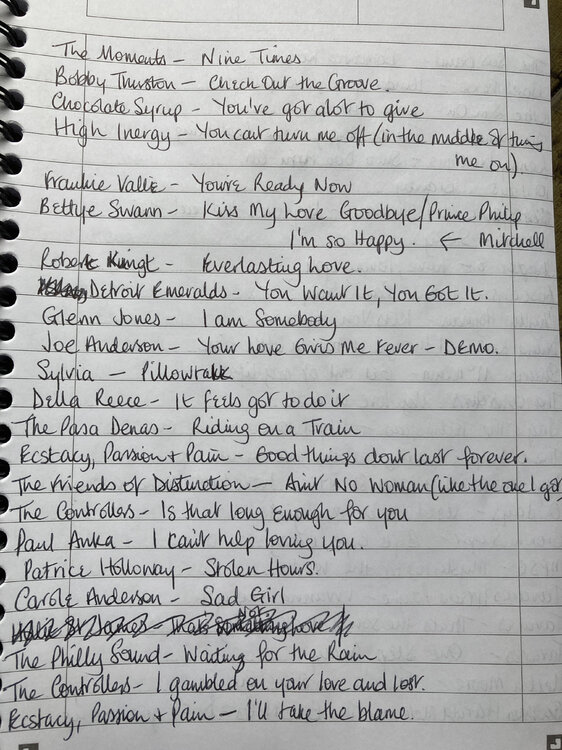 The Moments - Nine Times
Bobby Thurston - Check Out the Groove.
Chocolate Syrup - You've got alot to give
High Inergy - You cant turn me off (in the middle of turning
me on).
Frankie Vallie - You're Ready Now
Bettye Swann - Kiss My Love Goodbye/Prince Philip
I'm so Happy. ← Mitchell
Robert Kningt - Everlasting Love.
Detroit Emeralds - You Want It, You Got It.
Glenn Jones - I am Somebody
Joe Anderson - Your Love Gives Me Fever - DEMO.
Sylvia - Pillowtalk
Della Reece - It feels got to do it
The Pasa Denas - Riding on a Train
Ecstacy, Passion + Pain - Good things dont last forever.
The Friends of Distinction - Aint No Woman (like the one I got
The Controllers - Is that long Enough for you
Paul Anka - I can't help loving you.
Patrice Holloway - Stolen Hours.
Carole Anderson - Sad Girl
Not
The Philly Sound - Waiting for the Rain
The Controllers - I gambled on your love and lost.
Ecstacy, Passion + Pain - I'll take the blame.